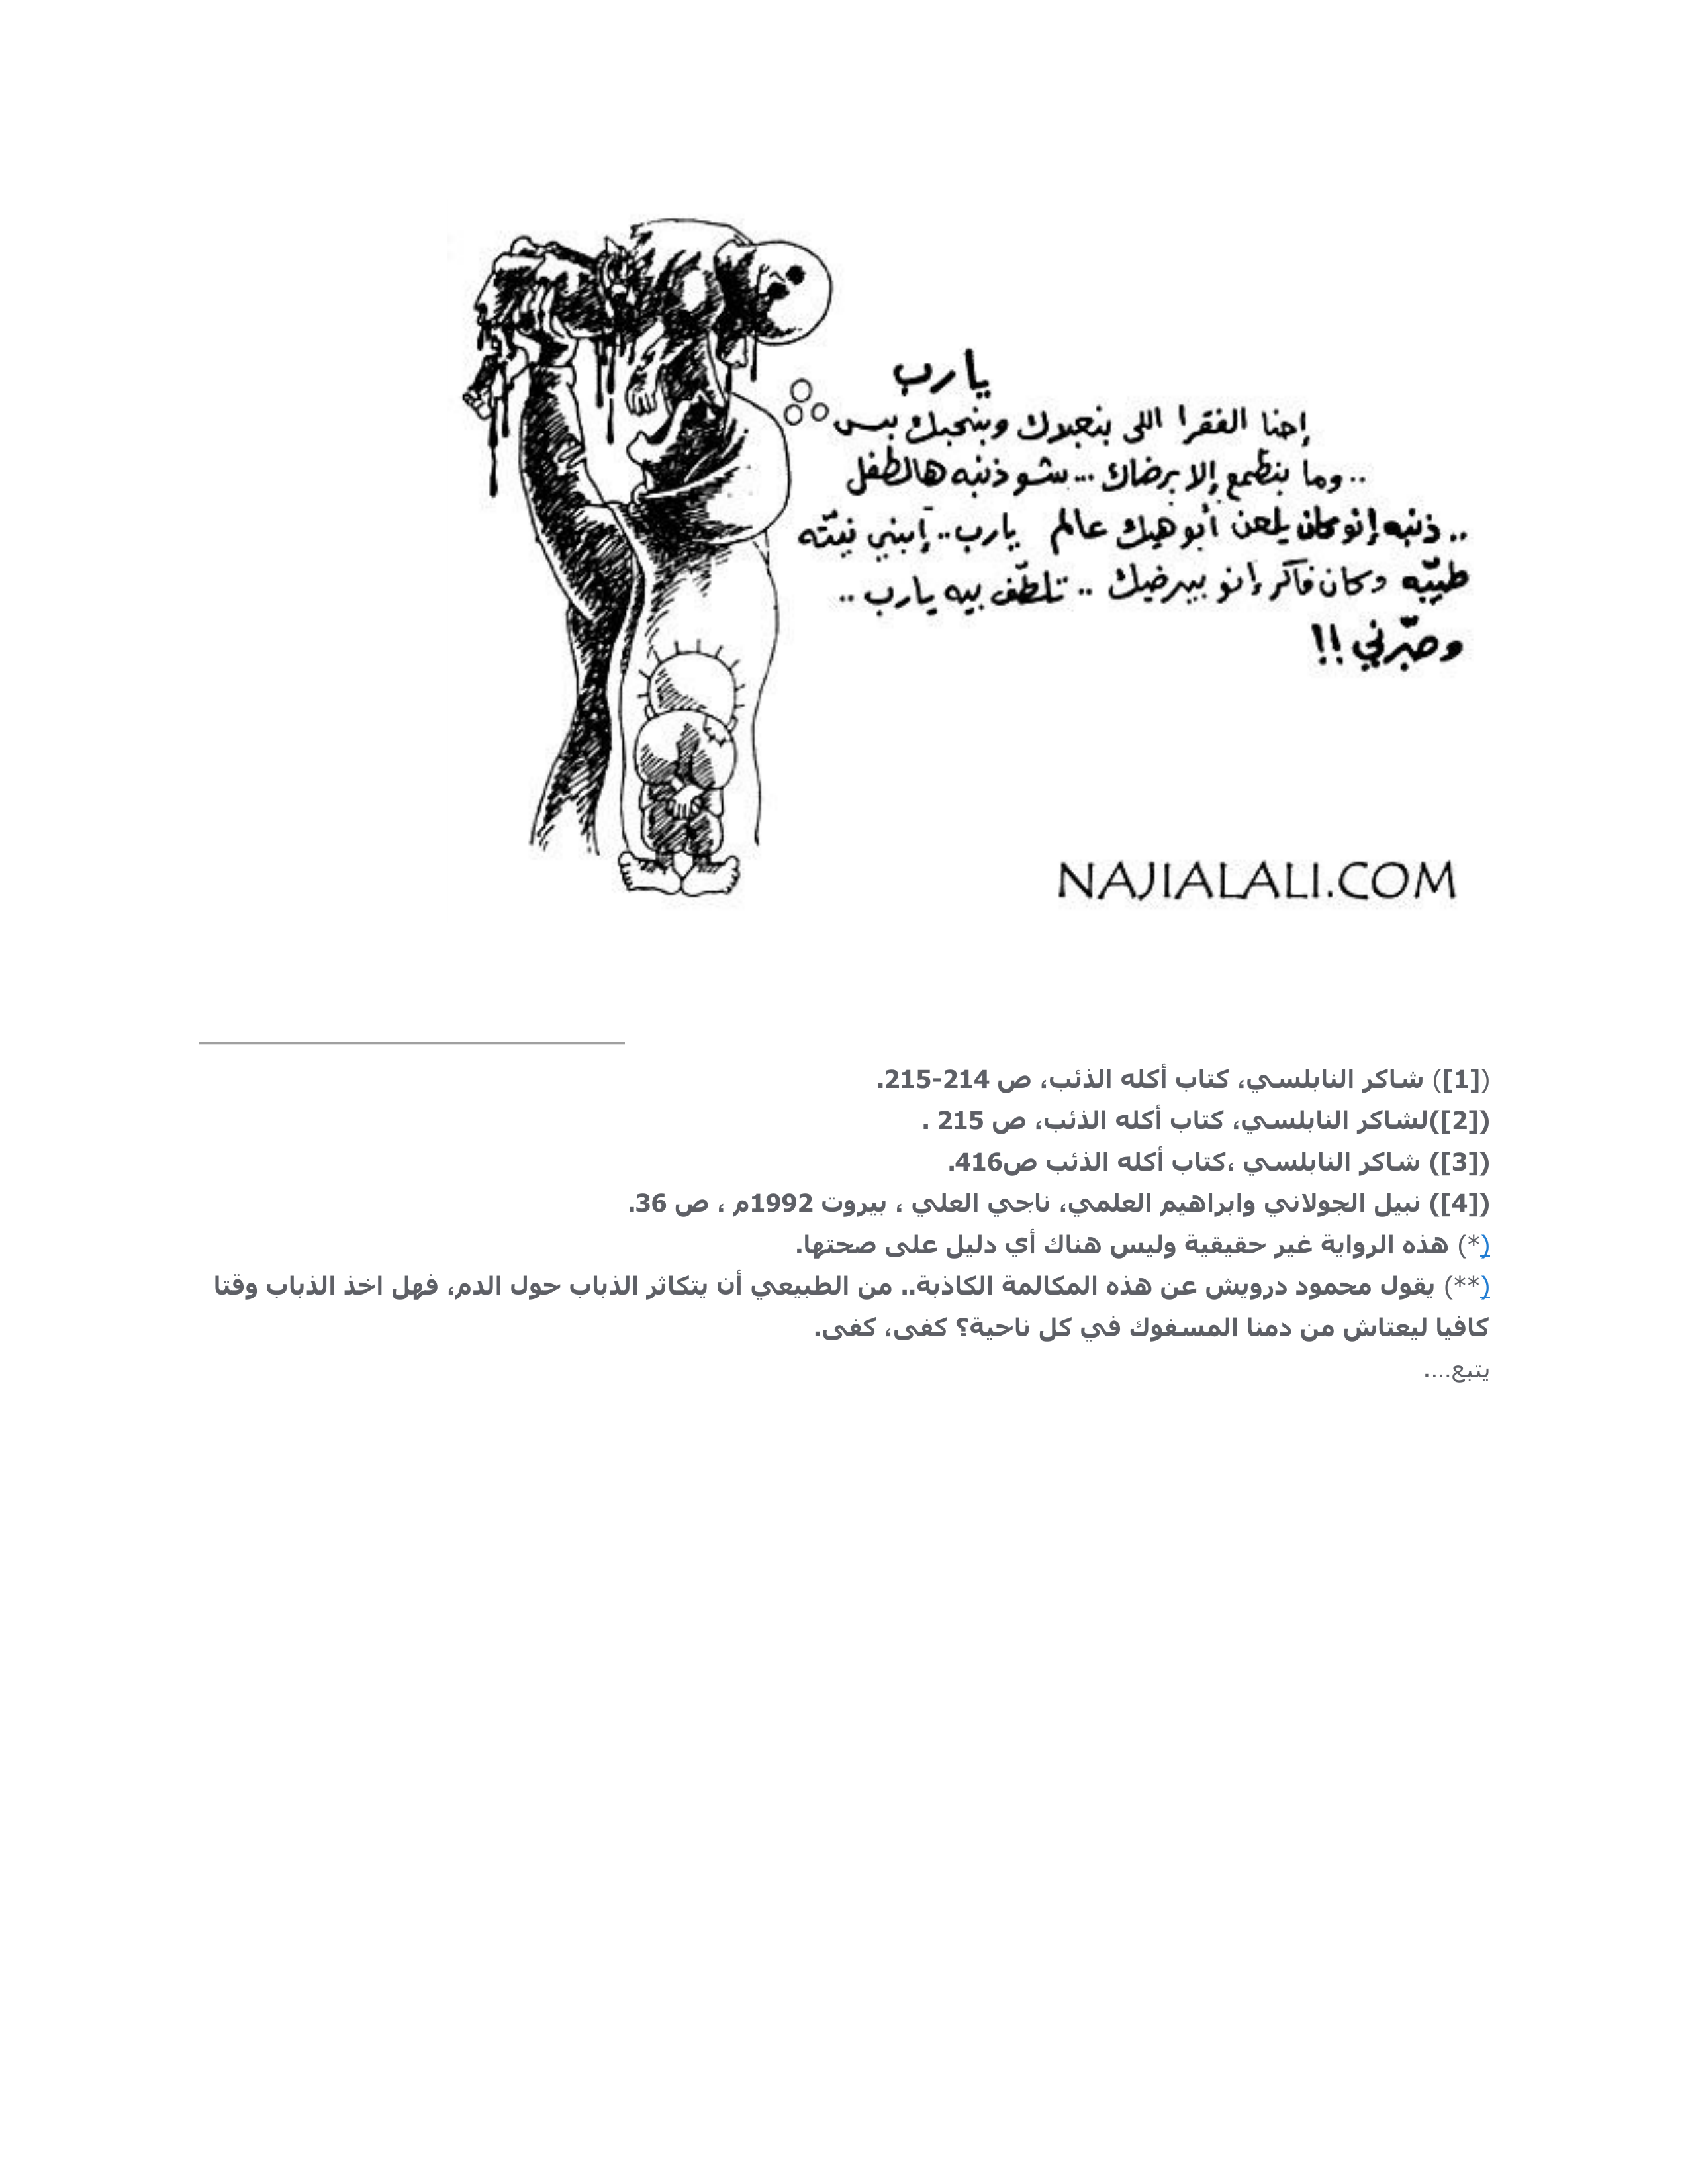 يارب
إحنا الفقرا اللى بنعبدك وبنحبك بس
.. وما بنطمع إلا برضاك ... شو ذنبه هالطفل
.. ذنبه إنو كان يلعن أبو هيك عالم يارب .. إبني نيّته
طيّبه وكان فاكر إنو بيرضيك .. تلطّف بيه يارب ..
وصبّرني !!
NAJIALALI.COM
([1]) شاكر النابلسي، كتاب أكله الذئب، ص 214-215.
([2])لشاكر النابلسي، كتاب أكله الذئب، ص 215 .
([3]) شاكر النابلسي ،كتاب أكله الذئب ص416.
([4]) نبيل الجولاني وابراهيم العلمي، ناجي العلي ، بيروت 1992م ، ص 36.
(*) هذه الرواية غير حقيقية وليس هناك أي دليل على صحتها.
(**) يقول محمود درويش عن هذه المكالمة الكاذبة.. من الطبيعي أن يتكاثر الذباب حول الدم، فهل اخذ الذباب وقتا
كافيا ليعتاش من دمنا المسفوك في كل ناحية؟ كفى، كفى.
يتبع....